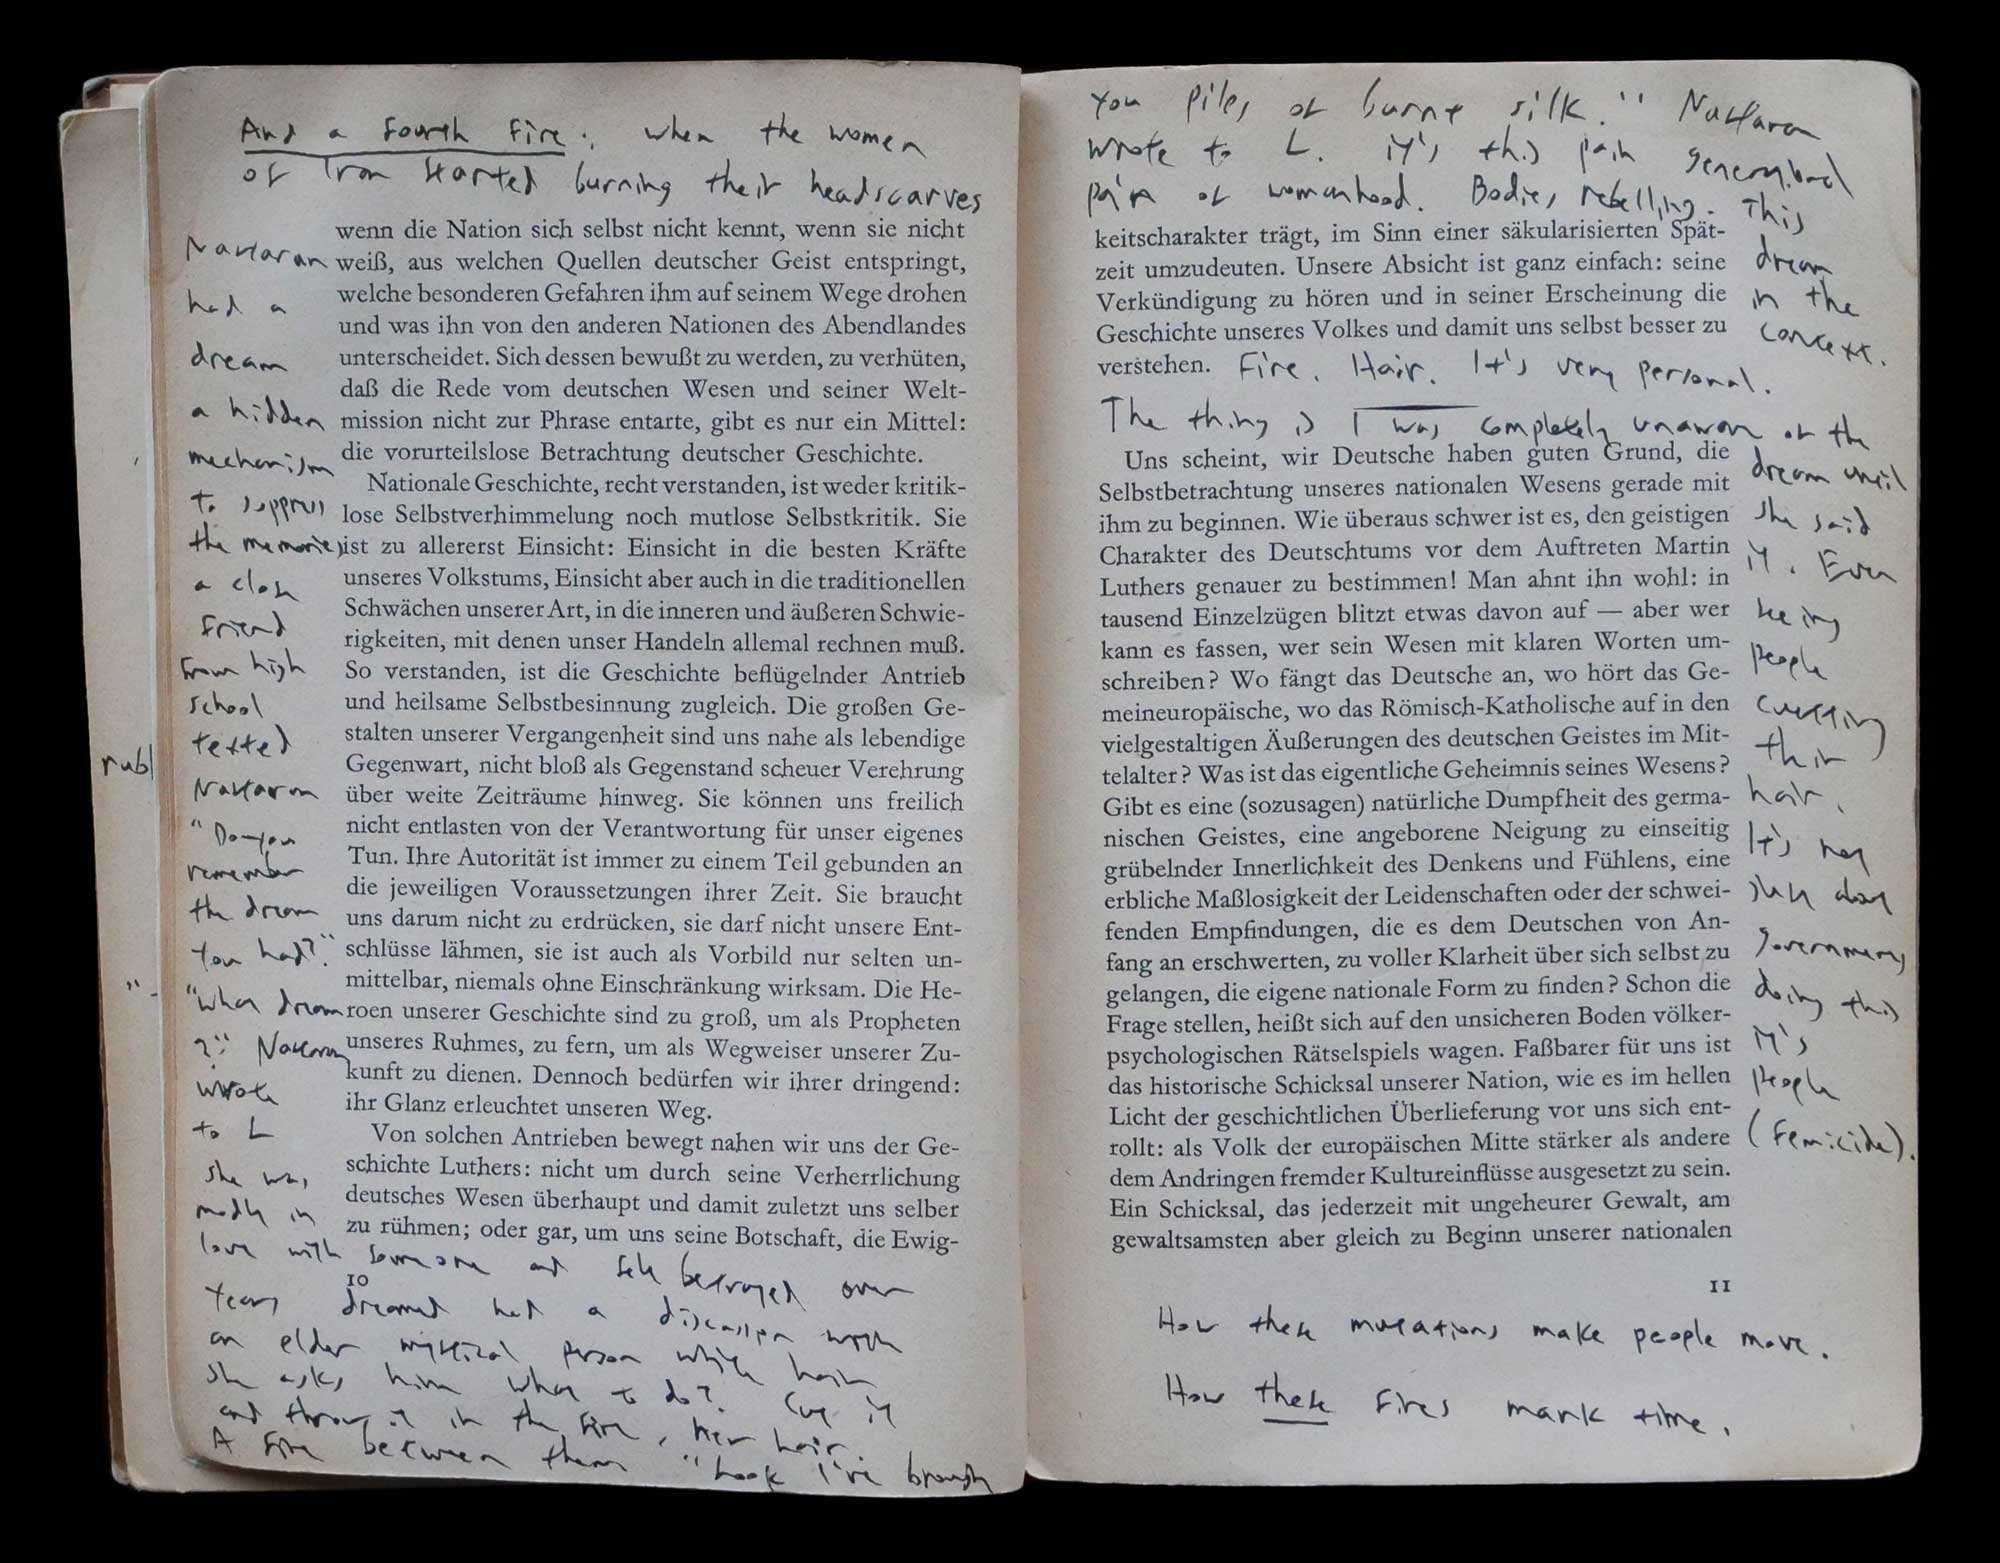 And a fourth fire. when the women
of Iran started burning their headscarves
wenn die Nation sich selbst nicht kennt, wenn sie nicht
weiß, aus welchen Quellen deutscher Geist entspringt,
welche besonderen Gefahren ihm auf seinem Wege drohen
und was ihn von den anderen Nationen des Abendlandes
unterscheidet. Sich dessen bewußt zu werden, zu verhüten,
daß die Rede vom deutschen Wesen und seiner Welt-
mission nicht zur Phrase entarte, gibt es nur ein Mittel:
die vorurteilslose Betrachtung deutscher Geschichte.
Nationale Geschichte, recht verstanden, ist weder kritik-
lose Selbstverhimmelung noch mutlose Selbstkritik. Sie
ist zu allererst Einsicht: Einsicht in die besten Kräfte
unseres Volkstums, Einsicht aber auch in die traditionellen
Schwächen unserer Art, in die inneren und äußeren Schwie-
rigkeiten, mit denen unser Handeln allemal rechnen muß.
So verstanden, ist die Geschichte beflügelnder Antrieb
und heilsame Selbstbesinnung zugleich. Die großen Ge-
stalten unserer Vergangenheit sind uns nahe als lebendige
Gegenwart, nicht bloß als Gegenstand scheuer Verehrung
über weite Zeiträume hinweg. Sie können uns freilich
nicht entlasten von der Verantwortung für unser eigenes
Tun. Ihre Autorität ist immer zu einem Teil gebunden an
die jeweiligen Voraussetzungen ihrer Zeit. Sie braucht
uns darum nicht zu erdrücken, sie darf nicht unsere Ent-
schlüsse lähmen, sie ist auch als Vorbild nur selten un-
mittelbar, niemals ohne Einschränkung wirksam. Die He-
roen unserer Geschichte sind zu groß, um als Propheten
unseres Ruhmes, zu fern, um als Wegweiser unserer Zu-
kunft zu dienen. Dennoch bedürfen wir ihrer dringend:
ihr Glanz erleuchtet unseren Weg.
Von solchen Antrieben bewegt nahen wir uns der Ge-
schichte Luthers: nicht um durch seine Verherrlichung
deutsches Wesen überhaupt und damit zuletzt uns selber
zu rühmen; oder gar, um uns seine Botschaft, die Ewig-
10
Nastaran
had a
dream
a hidden
mechanism
to suppress
the memories
a close
friend
from high
school
texted
Nastaran
"Do you
remember
the dream
you had?"
"What dream
?" Nastaran
wrote
to L
she was
madly in
love with someone and felt betrayed over
years dreamed had a discussion with
an elder mystical person white hair
she asks him what to do? Cut it
and throw it in the fire, her hair.
A fire between them "Look I've brought
rubl
you piles of burnt silk." Nastaran
wrote to L. it's this pain generational
pain of womanhood. Bodies rebelling. This
dream
in the
context.
keitscharakter trägt, im Sinn einer säkularisierten Spät-
zeit umzudeuten. Unsere Absicht ist ganz einfach: seine
Verkündigung zu hören und in seiner Erscheinung die
Geschichte unseres Volkes und damit uns selbst besser zu
verstehen.
Fire. Hair. It's very personal.
The thing is I was completely unaware of the
dream until
she said
it. Even
seeing
people
cutting
their
hair.
It's not
just about
government
doing this
it's
people
(femicide).
Uns scheint, wir Deutsche haben guten Grund, die
Selbstbetrachtung unseres nationalen Wesens gerade mit
ihm zu beginnen. Wie überaus schwer ist es, den geistigen
Charakter des Deutschtums vor dem Auftreten Martin
Luthers genauer zu bestimmen! Man ahnt ihn wohl: in
tausend Einzelzügen blitzt etwas davon auf — aber wer
kann es fassen, wer sein Wesen mit klaren Worten um-
schreiben? Wo fängt das Deutsche an, wo hört das Ge-
meineuropäische, wo das Römisch-Katholische auf in den
vielgestaltigen Äußerungen des deutschen Geistes im Mit-
telalter? Was ist das eigentliche Geheimnis seines Wesens?
Gibt es eine (sozusagen) natürliche Dumpfheit des germa-
nischen Geistes, eine angeborene Neigung zu einseitig
grübelnder Innerlichkeit des Denkens und Fühlens, eine
erbliche Maßlosigkeit der Leidenschaften oder der schwei-
fenden Empfindungen, die es dem Deutschen von An-
fang an erschwerten, zu voller Klarheit über sich selbst zu
gelangen, die eigene nationale Form zu finden? Schon die
Frage stellen, heißt sich auf den unsicheren Boden völker-
psychologischen Rätselspiels wagen. Faßbarer für uns ist
das historische Schicksal unserer Nation, wie es im hellen
Licht der geschichtlichen Überlieferung vor uns sich ent-
rollt: als Volk der europäischen Mitte stärker als andere
dem Andringen fremder Kultureinflüsse ausgesetzt zu sein.
Ein Schicksal, das jederzeit mit ungeheurer Gewalt, am
gewaltsamsten aber gleich zu Beginn unserer nationalen
11
How these mutations make people move.
How these fires mark time.